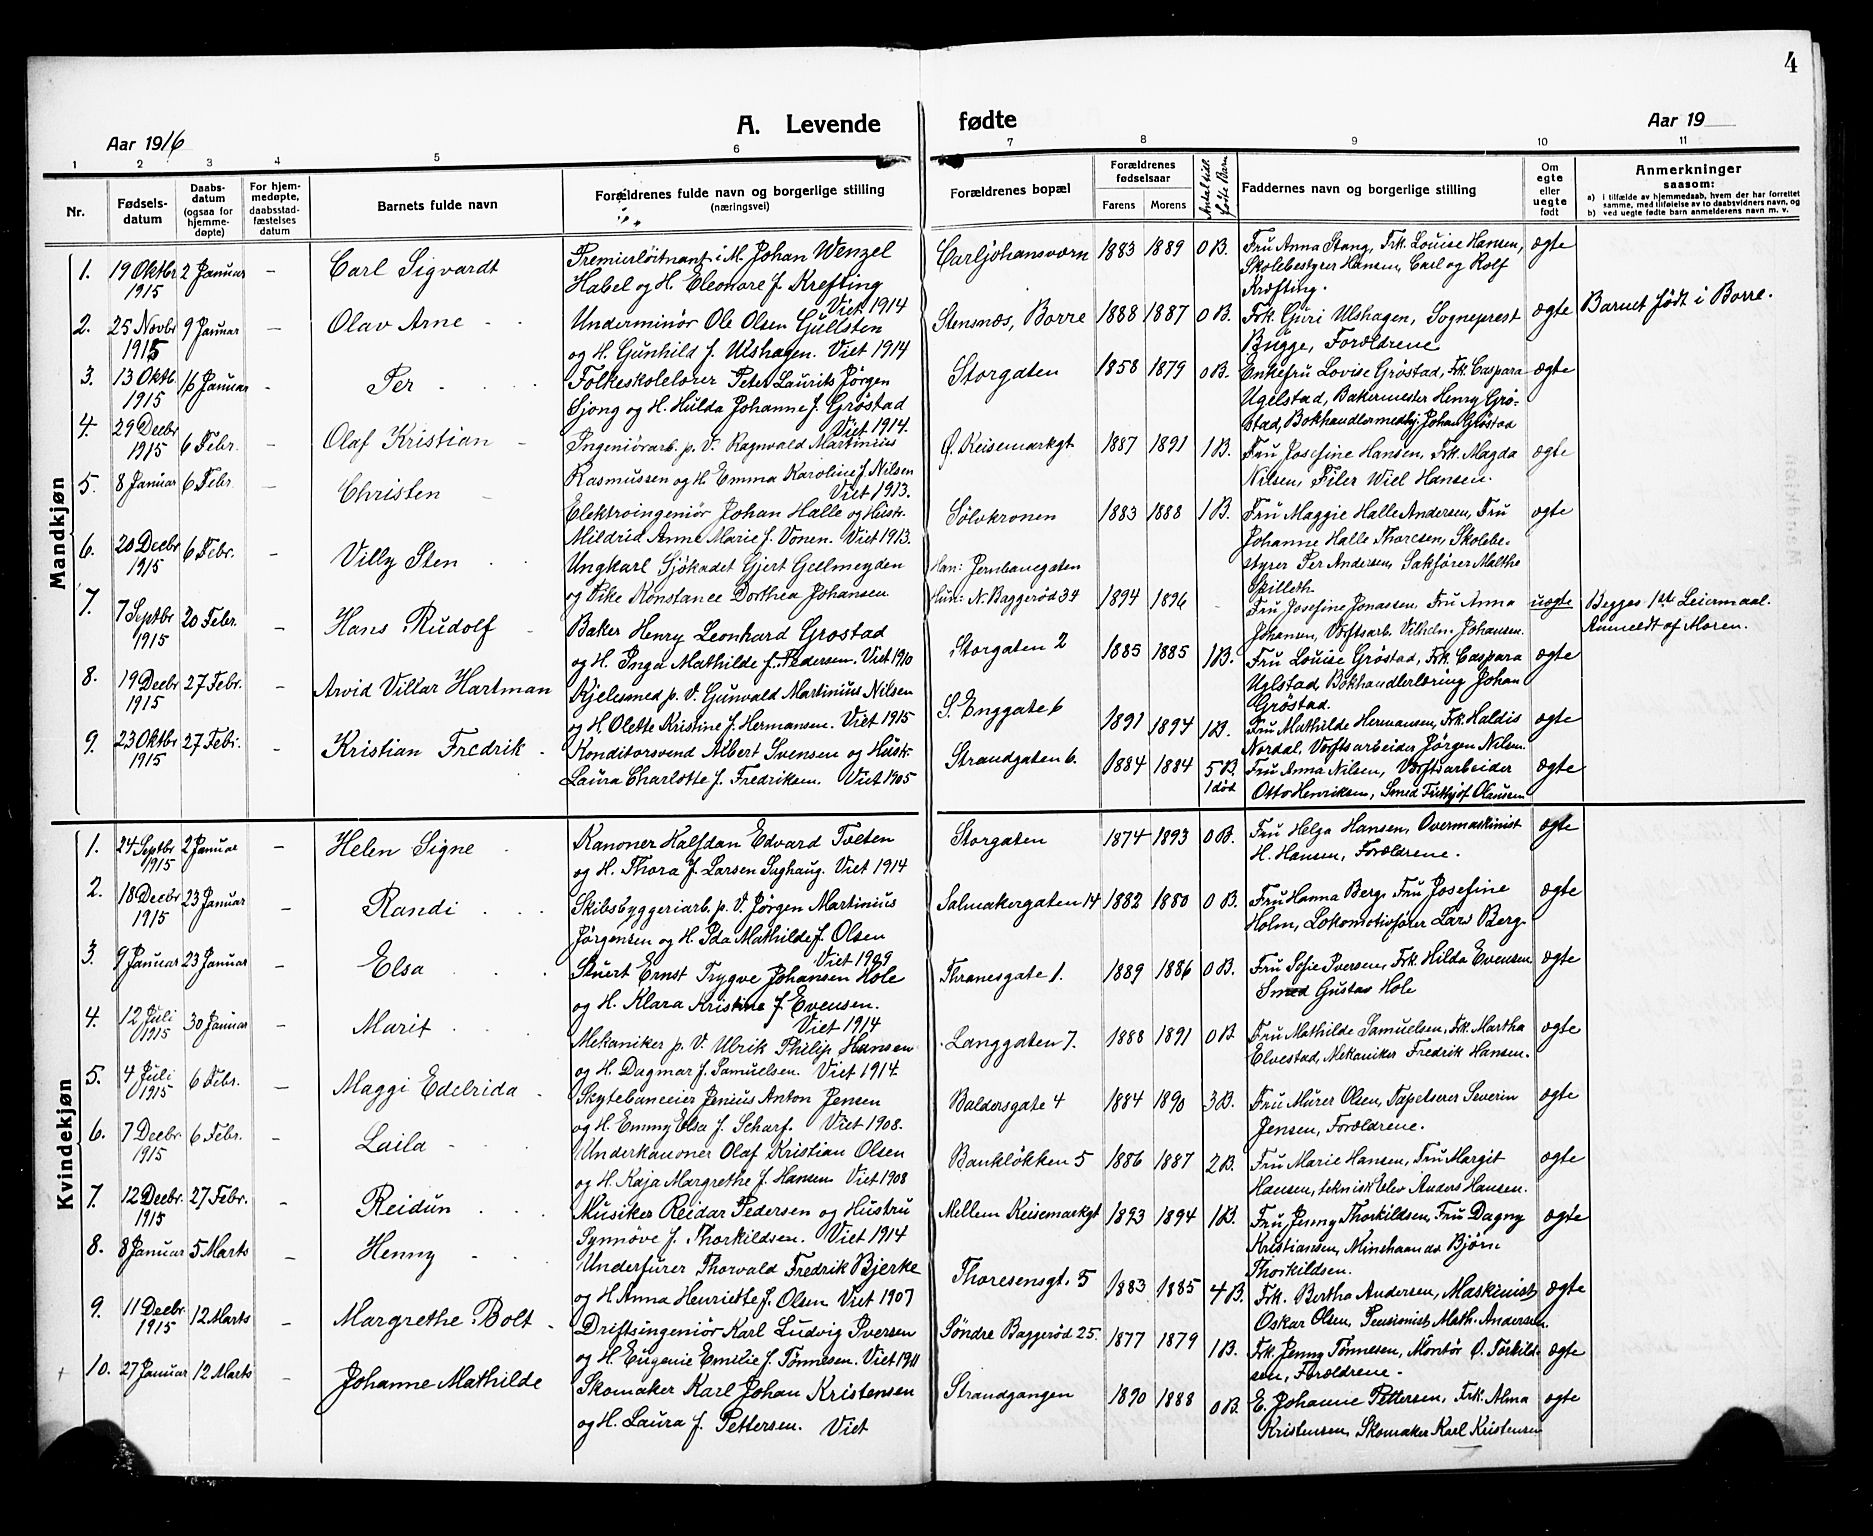 4
A. Levende fødte
Aar 1916
Aar 19
1 2 3 4 5 6 7 8 9 10 11
Nr.
Fødsels-
datum
Daabs-
datum
(ogsaa for
hjemme-
døpte)
For hjem-
medøpte,
daabsstad-
fæstelses
datum
Barnets fulde navn
Forældrenes fulde navn og borgerlige stilling
(næringsvei)
Forældrenes bopæl
Forældrenes
fødselsaar
Farens Morens
Antal tidl.
fødte Barn
Faddernes navn og borgerlige stilling
Om
egte
eller
uegte
født
Anmerkninger
saasom:
a) i tilfælde av hjemmedaab, hvem der har forrettet
samme, med tilføielse av to daabsvidners navn, og
b) ved uegte fødte barn anmelderens navn m. v.
Mandkjøn
1. 19 Oktbr 1915 2 Januar - Carl Sigvardt
Premierløitnant i M. Johan Wenzel
Habel og H. Eleonore f. Krefting
Viet 1914
Carljohansværn 1883 1889 0 B.
Fru Anna Stang, Frk. Louise Hansen,
Skolebestyrer Hansen, Carl og Rolf
Kræfting.
ægte
2. 25 Novbr 1915 9 Januar - Olav Arne
Underminør Ole Olsen Gullsten
og H. Gunhild f. Ulshagen. Viet 1914
Stensnæs, Borre 1888 1887 0 B.
Frk Guri Ulshagen, Sogneprest
Bugge, Forældrene
ægte
Barnet født i Borre.
3. 13 Oktb. 1915 16 Januar - Per
Folkeskolelærer Peter Laurits Jørgen
Sjong og H. Hulda Johanne f. Grøstad
Viet 1914.
Storgaten 1858 1879 0 B.
Enkefru Lovise Grøstad, Frk. Caspara
Ugelstad, Bakermester Henry Grø-
stad, Bokhandlermedhj. Johan Grøstad
ægte
4. 29 Decbr 1915 6 Febr. - Olaf Kristian
Ingeniørarb. p. V. Ragnvald Martinius
Rasmussen og H. Emma Karoline f. Nilsen
Viet 1913.
Ø. Keisemarkgt 1887 1891 1 B.
Fru Josefine Hansen, Frk. Magda
Nilsen, Filer Wiel Hansen.
ægte
5. 8 Januar 6 Febr. - Christen
Elektroingeniør Johan Halle og Hustr.
Mildrid Anne Marie f. Vonen. Viet 1913.
Sølvkronen 1883 1888 1 B.
Fru Maggie Halle Andersen, Fru
Johanne Halle Thoresen, Skolebe-
styrer Per Andersen, Sakfører Malthe
Skilleth.
ægte
6. 20 Decbr 1915 6 Febr. - Villy Sten
Ungkarl Sjøkadet Gjert Gellmeyden
og Pike Konstance Dorthea Johansen
Han: Jernbanegaten
Hun: N. Baggerød 34 1894 1896 -
Fru Josefine Jonassen, Fru Anna
Johansen, Værftsarb. Vilhelm Johansen.
uægte
Begges 1st Leiermaal.
Anmeldt af Moren.
7. 7 Septbr 1915 20 Febr. - Hans Rudolf
Baker Henry Leonhard Grøstad
og H. Inga Mathilde f. Pedersen. Viet 1910
Storgaten 2 1885 1885 1 B.
Fru Louise Grøstad, Frk. Caspara
Uglstad, Bokhandlerlæring Johan
Grøstad.
ægte
8. 19 Decbr 1915 27 Febr. - Arvid Villar Hartman
Kjelesmed p. V. Gunvald Martinius Nilsen
og H. Olette Kristine f. Hermansen. Viet 1915
S. Enggate 6 1891 1894 1 B.
Fru Mathilde Hermansen, Frk. Haldis
Nordal, Værftsarbeider Jørgen Nilsen.
ægte
9. 23 Oktbr 1915 27 Febr. - Kristian Fredrik
Konditorsvend Albert Svensen og Hustr.
Laura Charlotte f. Fredriksen. Viet 1905
Strandgaten 6. 1884 1884 5 B. 1 død
Fru Anna Nilsen, Værftsarbeider
Otto Henriksen, Smed Frithjof Olaussen
ægte
Kvindekjøn
1. 24 Septbr 1915 2 Januar - Helen Signe
Kanoner Halfdan Edvard Tveten
og H. Thora f. Larsen Saghaug. Viet 1914
Storgaten 1874 1893 0 B.
Fru Helga Hansen, Overmaskinist
H. Hansen, Forældrene.
ægte
2. 18 Decbr 1915 23 Januar - Randi
Skibsbyggeriarb. p. V. Jørgen Martinius
Jørgensen og H. Ida Mathilde f. Olsen
Viet 1909
Salmakergaten 14 1882 1880 0 B.
Fru Hanna Berg, Fru Josefine
Holm, Lokomotivfører Lars Berg.
ægte
3. 9 Januar 23 Januar - Elsa
Stuert Ernst Trygve Johansen Hole
og H. Klara Kristine f. Evensen.
Viet 1914
Thranesgate 1. 1889 1886 0 B.
Fru Sofie Iversen, Frk. Hilda Evensen
Smed Gustav Hole
ægte
4. 12 Juli 1915 30 Januar - Marit
Mekaniker p. V. Ulrik Philip Hansen
og H. Dagmar f. Samuelsen. Viet 1914.
Langgaten 7. 1888 1891 0 B.
Fru Mathilde Samuelsen, Frk. Martha
Elvestad, Mekaniker Fredrik Hansen.
ægte
5. 4 Juli 1915 6 Febr. - Maggi Edelrida
Skytebaneeier Jenius Anton Jensen
og H. Emmy Elsa f. Scharf. Viet 1908.
Baldersgate 4 1884 1890 3 B.
Fru Murer Olsen, Tapetserer Severin
Jensen, Forældrene.
ægte
6. 7 Decbr. 1915 6 Febr. - Laila
Underkanoner Olaf Kristian Olsen
og H. Kaja Margrethe f. Hansen Viet 1908
Bankløkken 5 1886 1887 2 B.
Fru Marie Hansen, Fru Margit
Hansen, teknisk elev Anders Hansen.
ægte
7. 12 Decbr. 1915 27 Febr. - Reidun
Musiker Reidar Pedersen og Hustru
Synnøve f. Thorkildsen. Viet 1914
Mellem Keisemarkgt 1893 1894 1 B.
Fru Jenny Thorkildsen, Fru Dagny
Kristiansen, Minehaand Bjørn
Thorkildsen.
ægte
8. 8 Januar 5 Marts - Henny
Underfurer Thorvald Fredrik Bjerke
og H. Anna Henriette f. Olsen Viet 1907
Thoresensgt. 5 1883 1885 4 B.
Frk. Bertha Andersen, Maskinist
Oskar Olsen, Pensionist Math. Andersen.
ægte
9. 11 Decbr. 1915 12 Marts - Margrethe Bolt
Driftsingeniør Karl Ludvig Iversen
og H. Eugenie Emilie f. Tønnesen. Viet 1911
Søndre Baggerød 25. 1877 1879 1 B.
Frk. Jenny Tønnesen, Montør O. Torkild-
sen, Forældrene.
ægte
10. 27 Januar 12 Marts - Johanne Mathilde
Skomaker Karl Johan Kristensen
og H. Laura f. Pettersen. Viet
Strandgangen 1890 1888 0 B.
E. Johanne Pettersen, Frk. Alma
Kristensen, Skomaker Karl Kristensen
ægte